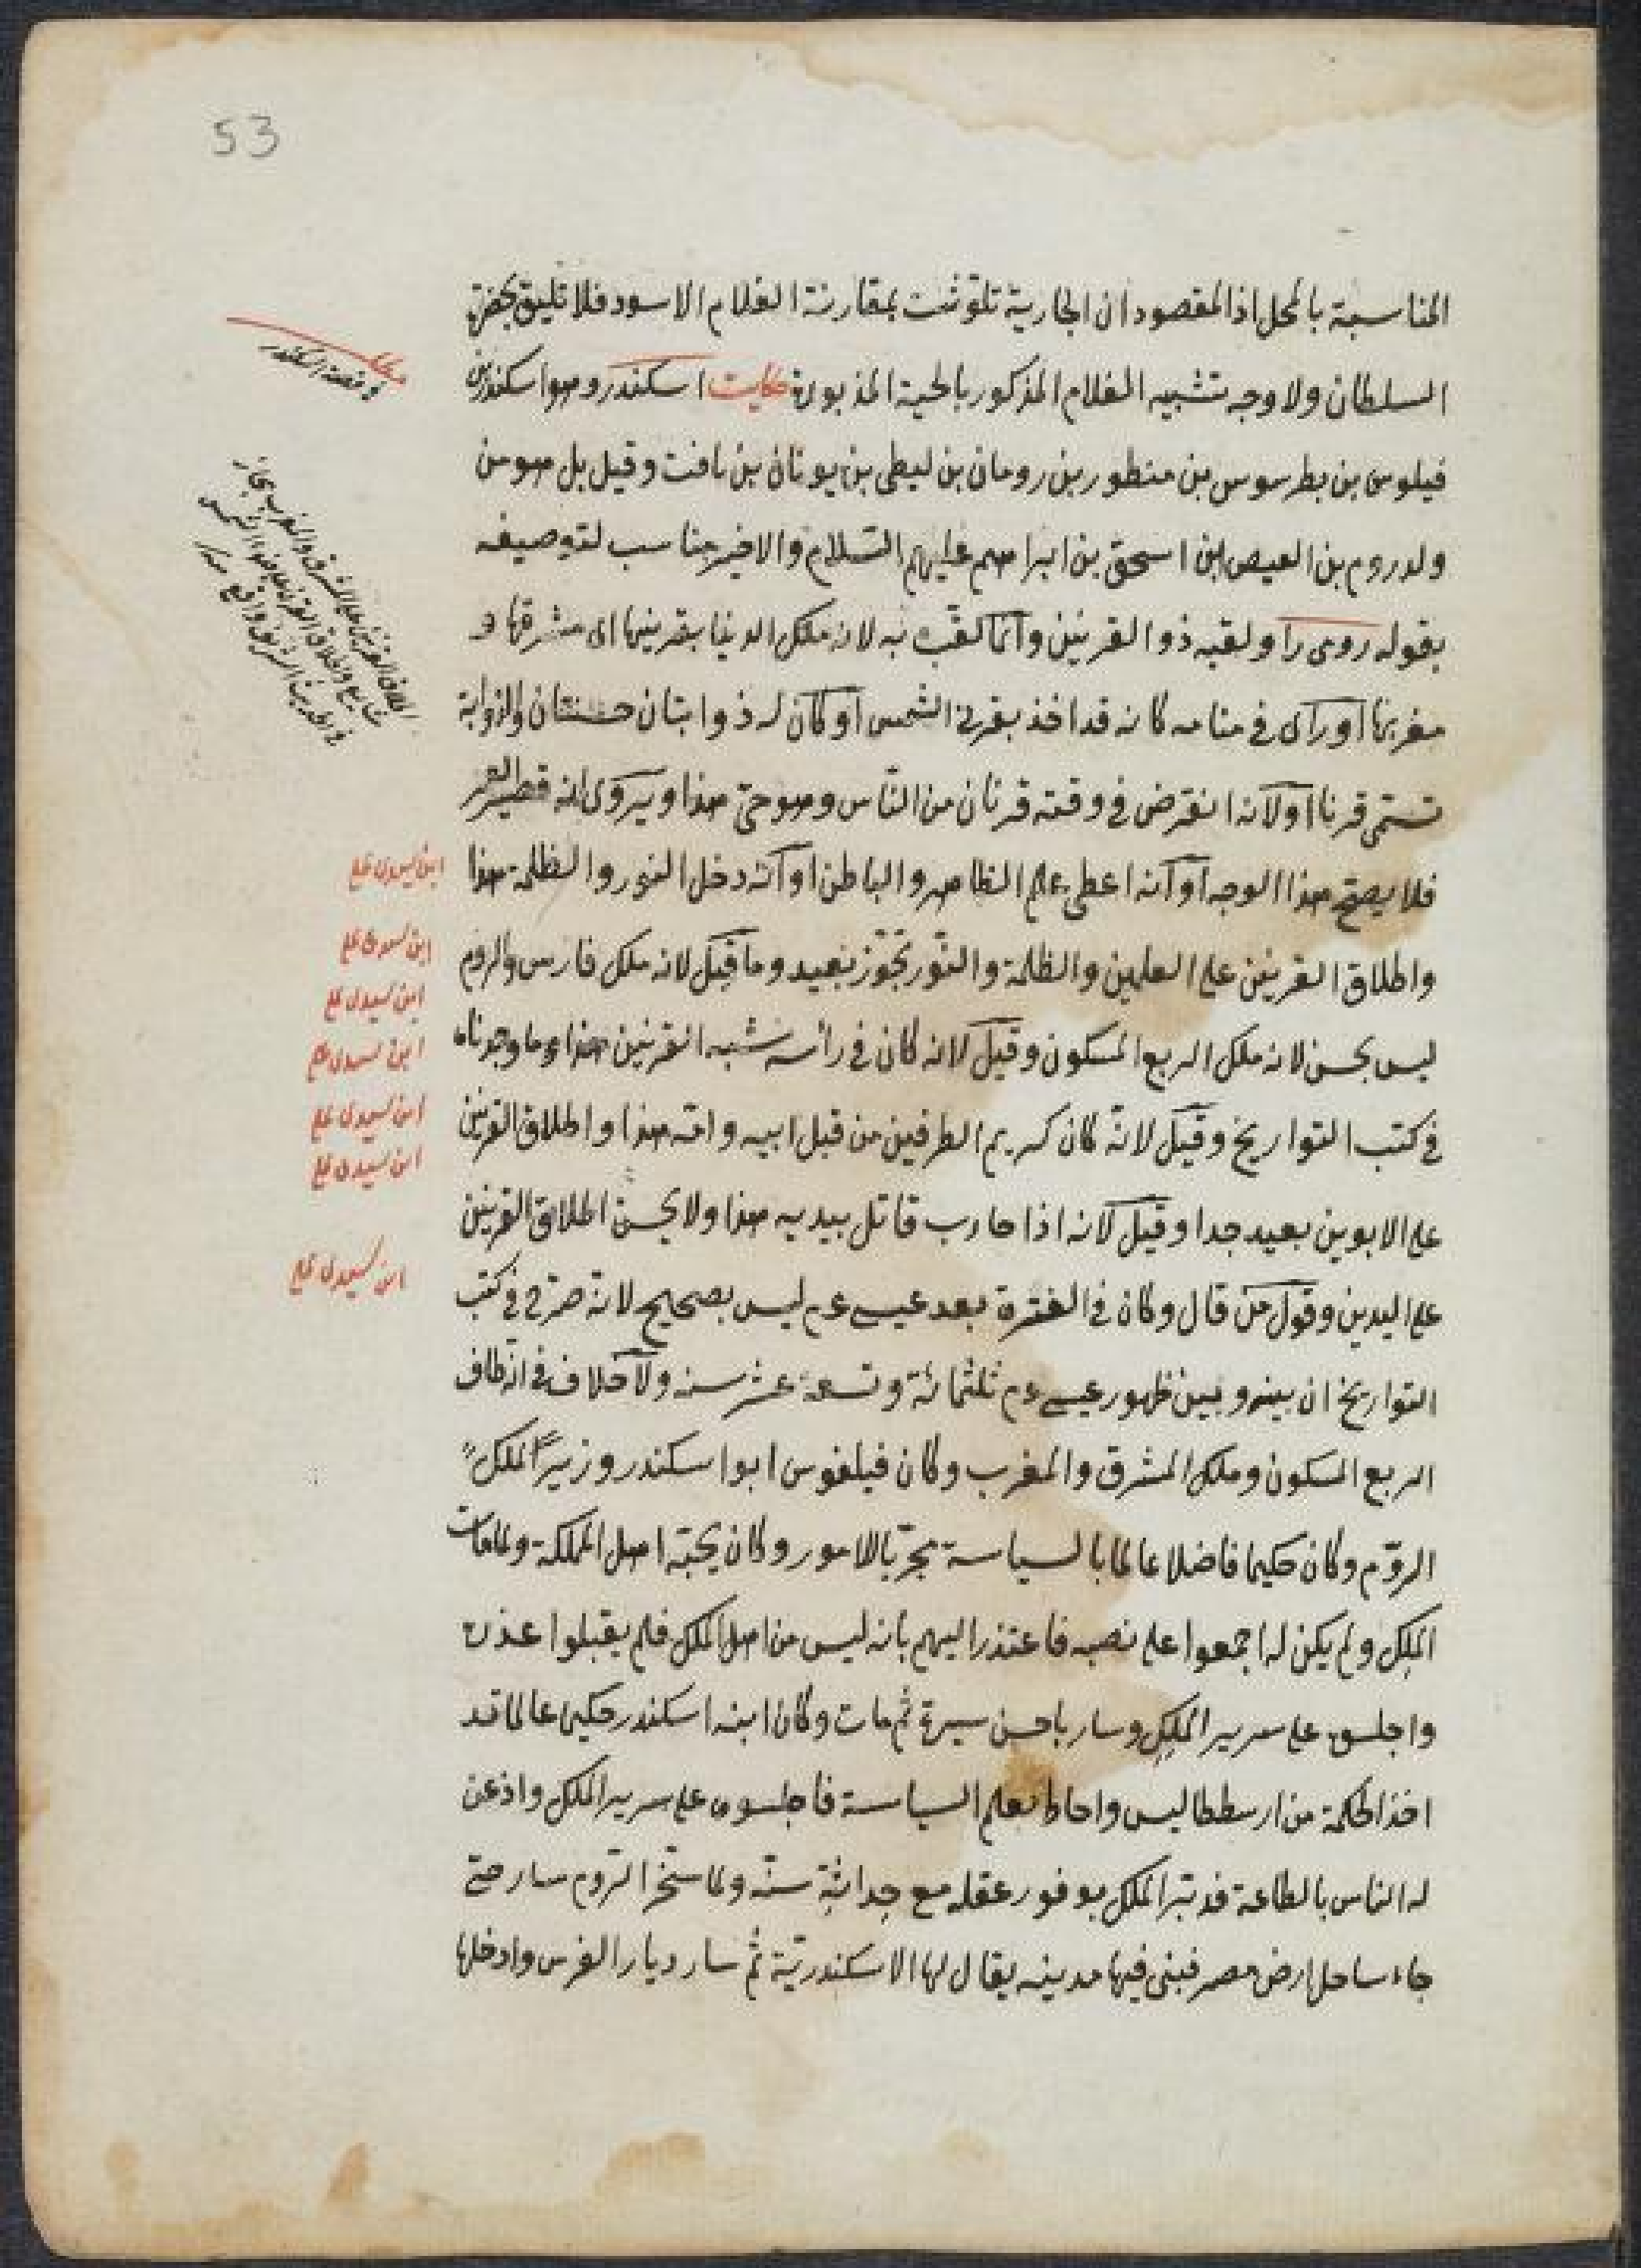 53
المناسبة بالمحل اذ المقصود ان الجارية تلوثت بمقارنة الغلام الاسود فلا تليق بحضرة
السلطان ولا وجه تشبيه الغلام المذكور بالحية المذبورة حكايت اسكندر وهو اسكندر بن
فيلوس بن بطرسوس بن منطور بن رومان بن ليطى بن يونان بن يافت وقيل بل هو من
ولد روم بن العيص ابن اسحق بن ابراهيم عليهم السّلام والاخير مناسب لتوصيفه
بقوله رومى را ولقبه ذو القرنين وانما لقّب به لانه ملك الدنيا بقرنيها اى مشرقها و
مغربها او راى فى منامه كانه قد اخذ بقرنى الشمس او كان له ذوابتان حسنتان والذوابة
تسمّى قرنا او لانه انقرض فى وقته قرنان من النّاس وهو حىّ هذا ويروى انه قصير العمر
فلا يصحّ هذا الوجه او انه اعطى علم الظاهر والباطن او انّه دخل النور والظلمة هذا
واطلاق القرنين على العلمين والظلمة والنّور تجوّز بعيد وما قيل لانه ملك فارس والروم
ليس بحسن لانه ملك الربع المسكون وقيل لانه كان فى رأسه شبه القرنين هذا وما وجدناه
فى كتب التواريخ وقيل لانّه كان كريم الطرفين من قبل ابيه وامّه هذا واطلاق القرنين
على الابوين بعيد جدا وقيل لانه اذا حارب قاتل بيديه هذا ولا يحسن اطلاق القرنين
على اليدين وقول من قال وكان فى الفترة بعد عيسى عم ليس بصحيح لانه صرّح فى كتب
التواريخ ان بينه وبين ظهور عيسى عم ثلثمائة وتسعة عشر سنه ولا خلاف فى انه طاف
الربع المسكون وملك المشرق والمغرب وكان فيلقوس ابو اسكندر وزيرًا لملك
الروم وكان حكيما فاضلا عالما بالسياسة مجرّبا لامور وكان يحبّه اهل المملكة ولما مات
الملك ولم يكن له اجمعوا على نصبه فاعتذر اليهم بانه ليس من اهل الملك فلم يقبلوا عذره
واجلسوه على سرير الملك وسار باحسن سيرة ثم مات وكان ابنه اسكندر حكيما عالما قد
اخذ الحكمة من ارسطاطاليس واحاط بعلم السياسة فاجلسوه على سرير الملك واذعن
له الناس بالطاعة فدبّر الملك بوفور عقله مع حداثة سنّه ولما سخّر الرّوم سار حتى
جاء ساحل ارض مصر فبنى فيها مدينه يقال لها الاسكندريّة ثم سار ديار الفرس وادخلها
مطلب
فى قصة اسكندر
اطلاق القرنين على المشرق والمغرب مجاز
شايع واطلاق القرن على ضوء الشمس
فى الحديث الشريف واقع منه
ابن سيدى على
ابن سيدى على
ابن سيدى على
ابن سيدى على
ابن سيدى على
ابن سيدى على
ابن سيدى على